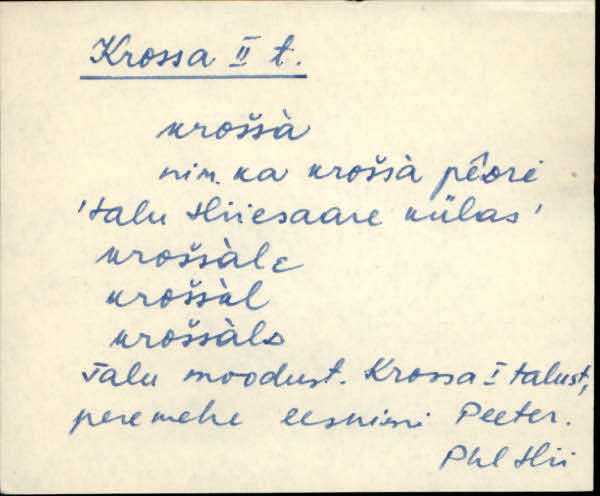 Krossa II t.
krošsà
nim. ka krošsà pȇori
'talu Hiiesaare külas'
krošsàle
krošsàl
krošsàls
Talu moodust. Krossa I talust,
peremehe eesnimi Peeter.
Phl Hii